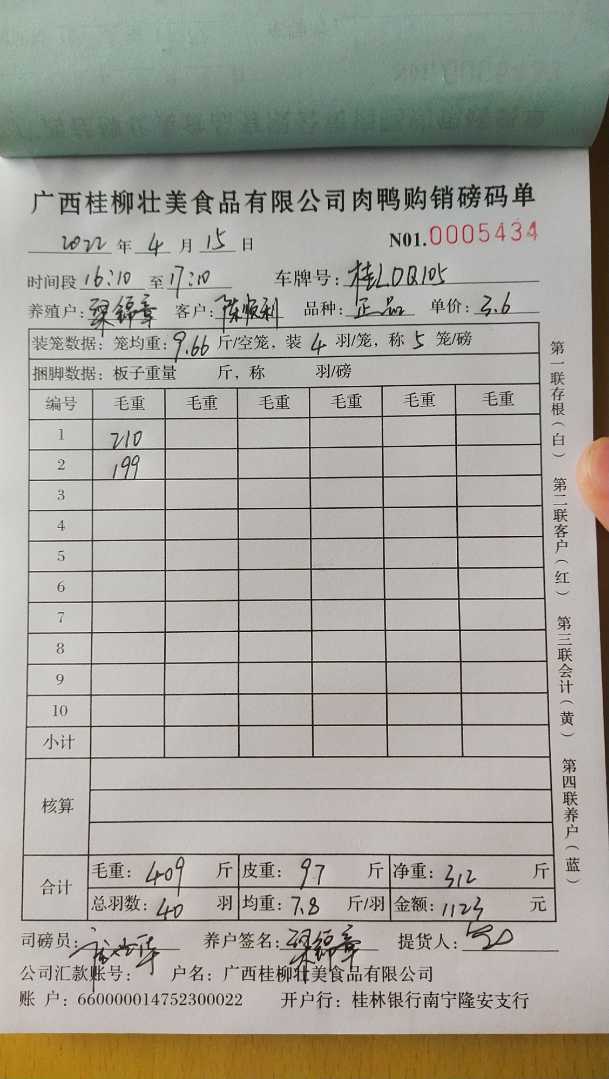 广西桂柳壮美食品有限公司肉鸭购销磅码单
2022 年 4 月 15 日 N01.0005434
时间段 16:10 至 17:10 车牌号: 桂LDQ105
养殖户: 梁锦章 客户: 陈顺利 品种: 正品 单价: 3.6
装笼数据: 笼均重: 9.66 斤/空笼, 装 4 羽/笼, 称 5 笼/磅
捆脚数据: 板子重量 斤, 称 羽/磅
编号 毛重 毛重 毛重 毛重 毛重 毛重
1 210
2 199
3
4
5
6
7
8
9
10
小计
核算
合计 毛重: 409 斤 皮重: 97 斤 净重: 312 斤
总羽数: 40 羽 均重: 7.8 斤/羽 金额: 1123 元
司磅员: 养户签名: 梁锦章 提货人:
公司汇款账号: 户名: 广西桂柳壮美食品有限公司
账 户: 660000014752300022 开户行: 桂林银行南宁隆安支行
第一联存根(白) 第二联客户(红) 第三联会计(黄) 第四联养户(蓝)